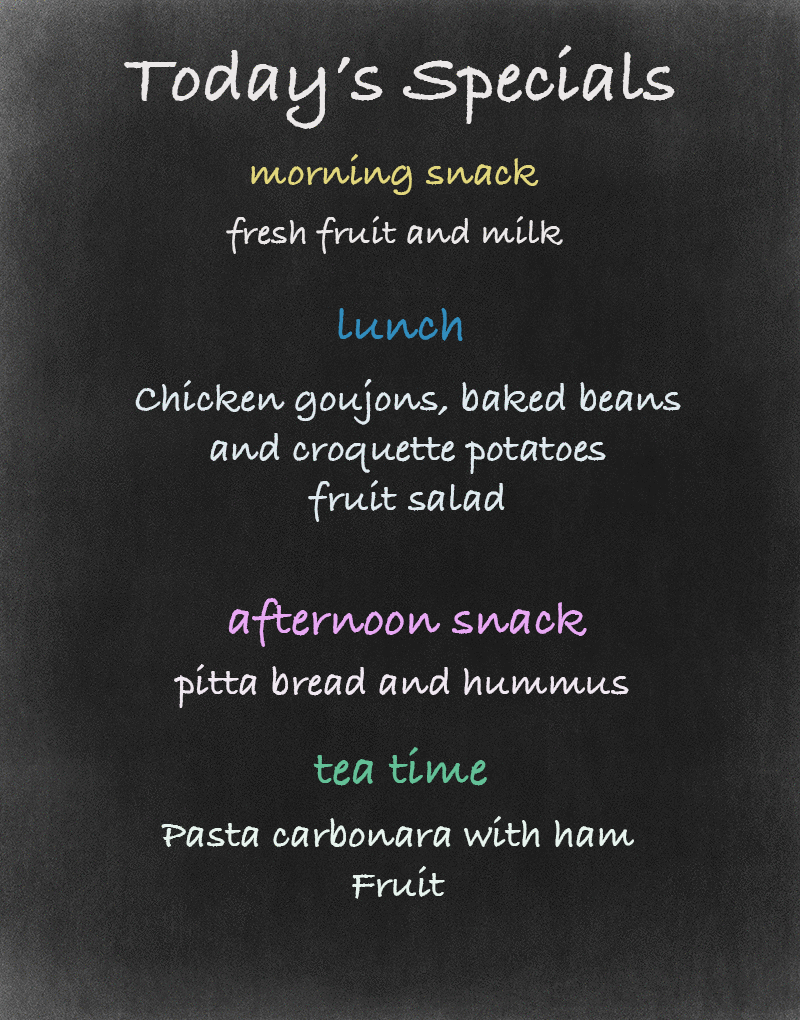 Today's Specials
morning snack
fresh fruit and milk
lunch
Chicken goujons, baked beans
and croquette potatoes
fruit salad
afternoon snack
pitta bread and hummus
tea time
Pasta carbonara with ham
Fruit